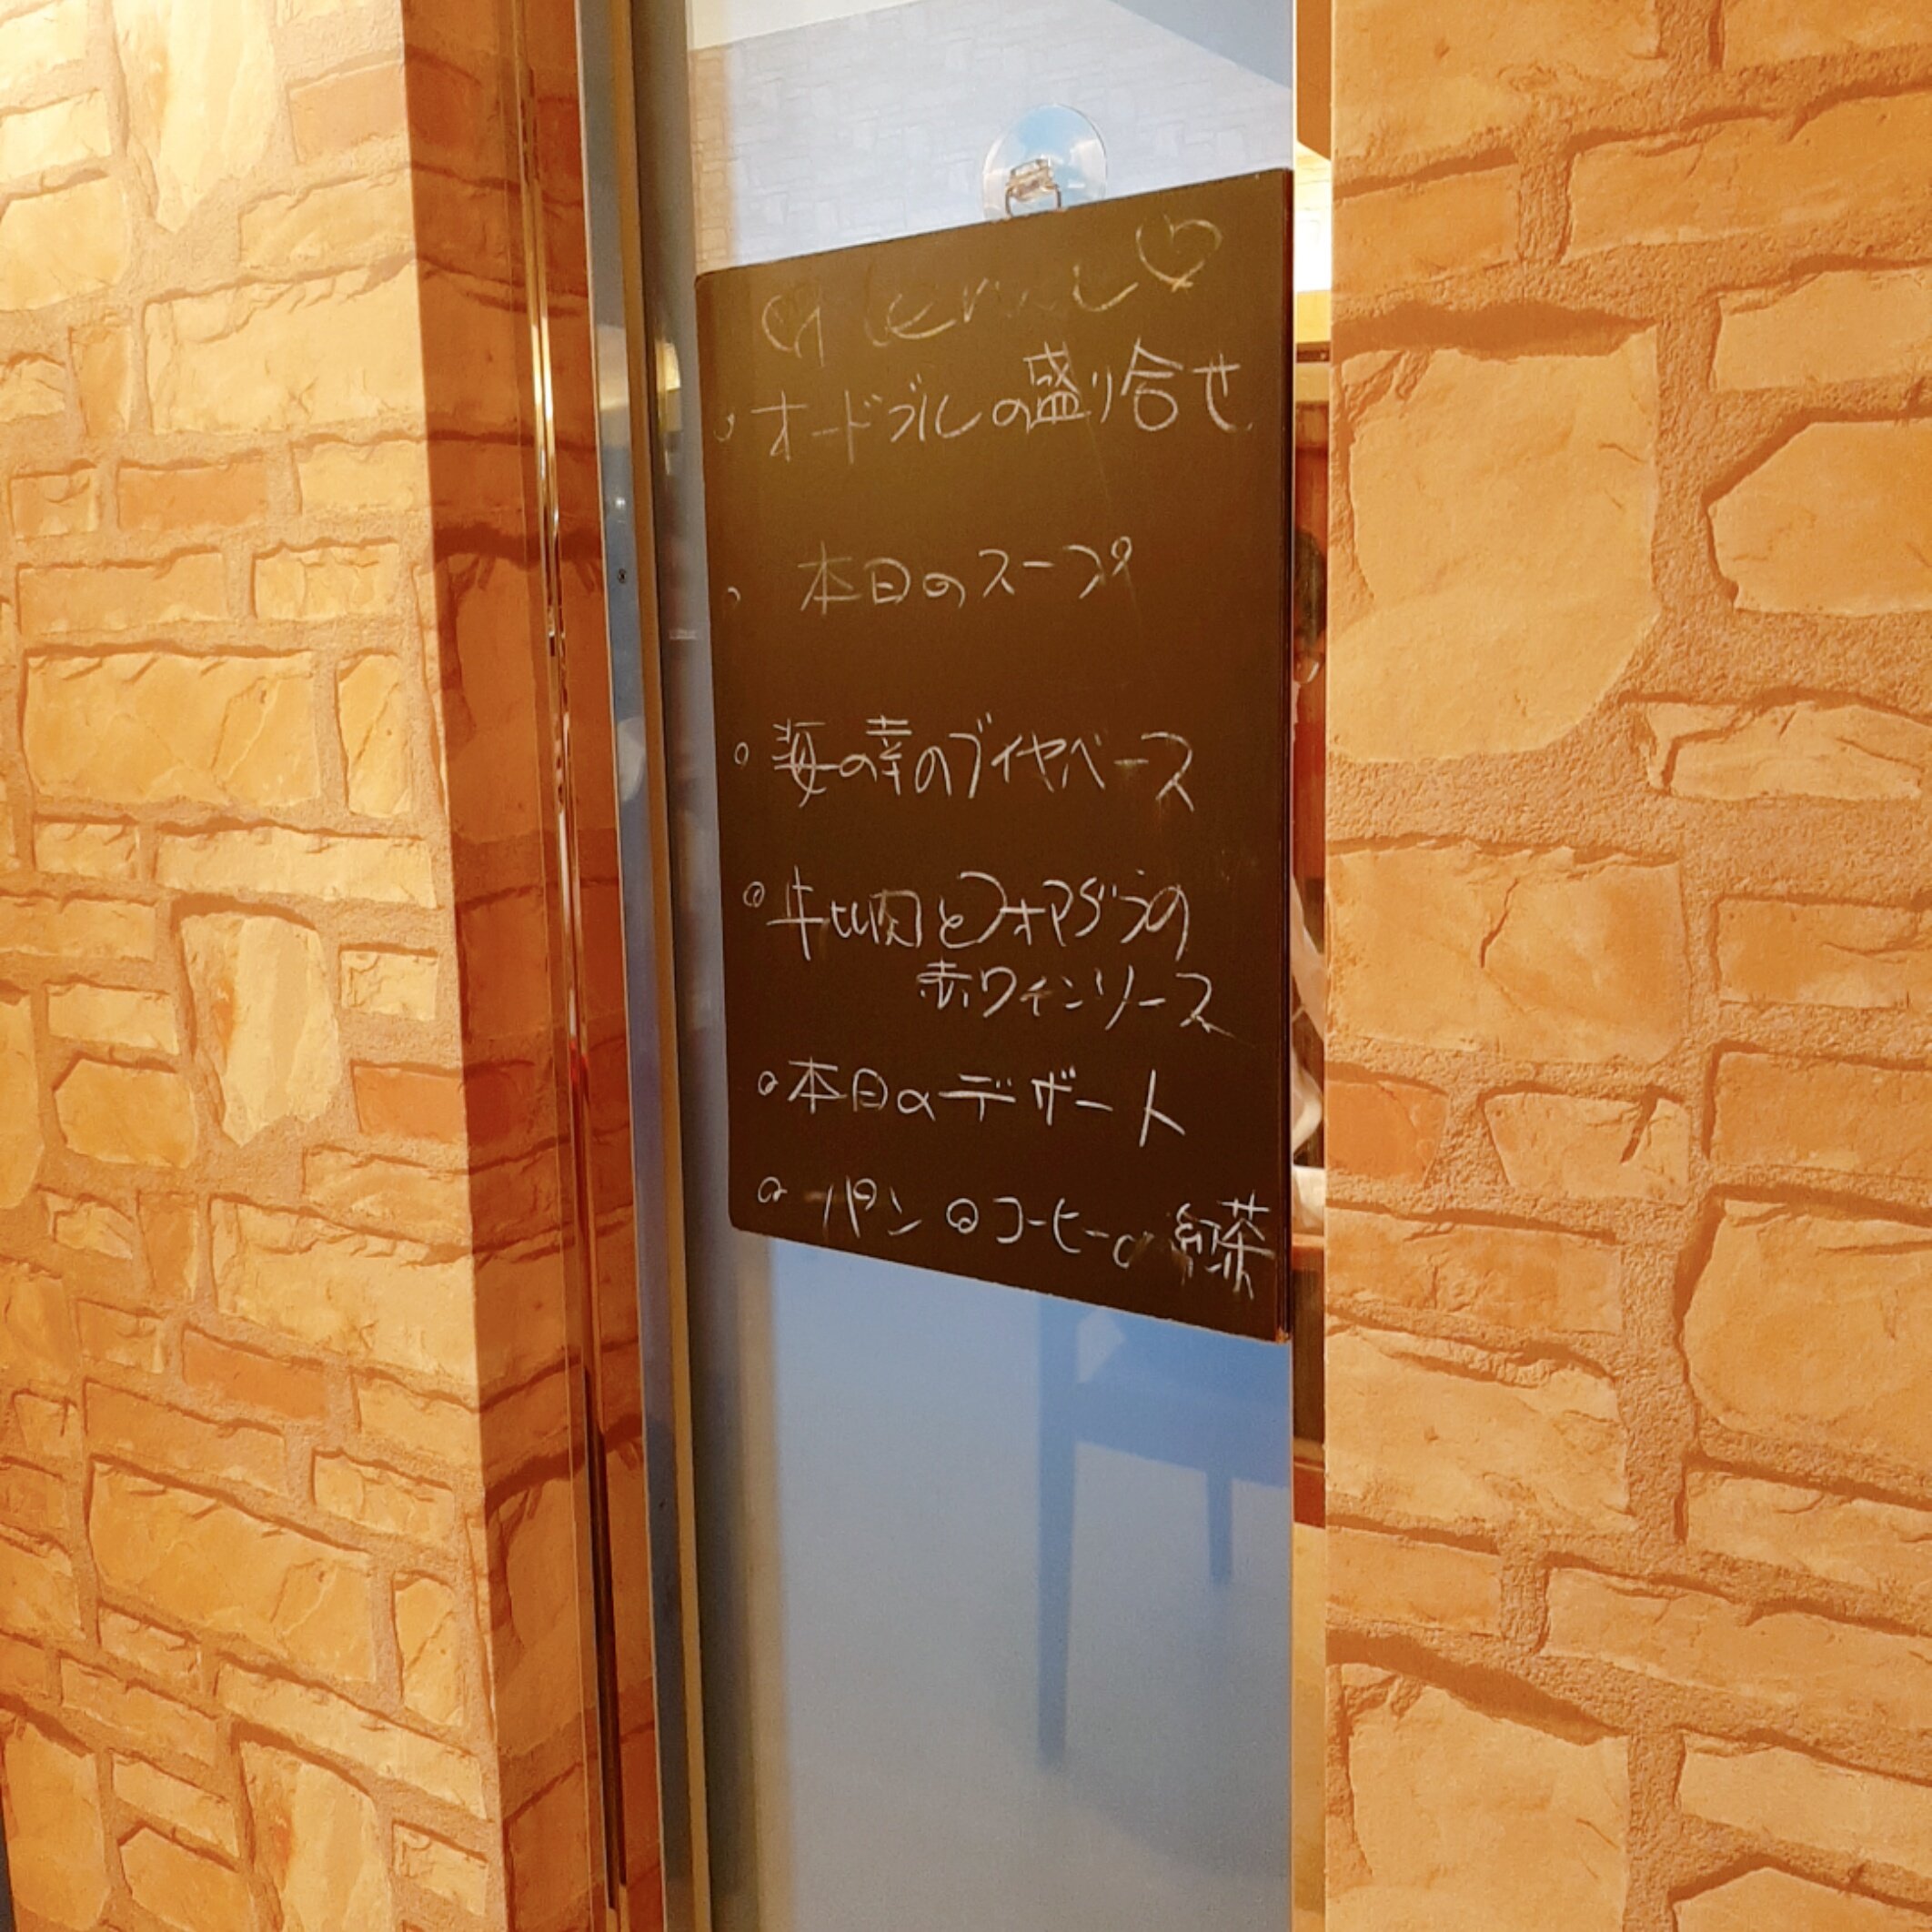 ♡Menu♡
・オードブルの盛り合せ
・本日のスープ
・海の幸のブイヤベース
・牛ヒレ肉とフォアグラの
赤ワインソース
・本日のデザート
・パン ・コーヒー or 紅茶